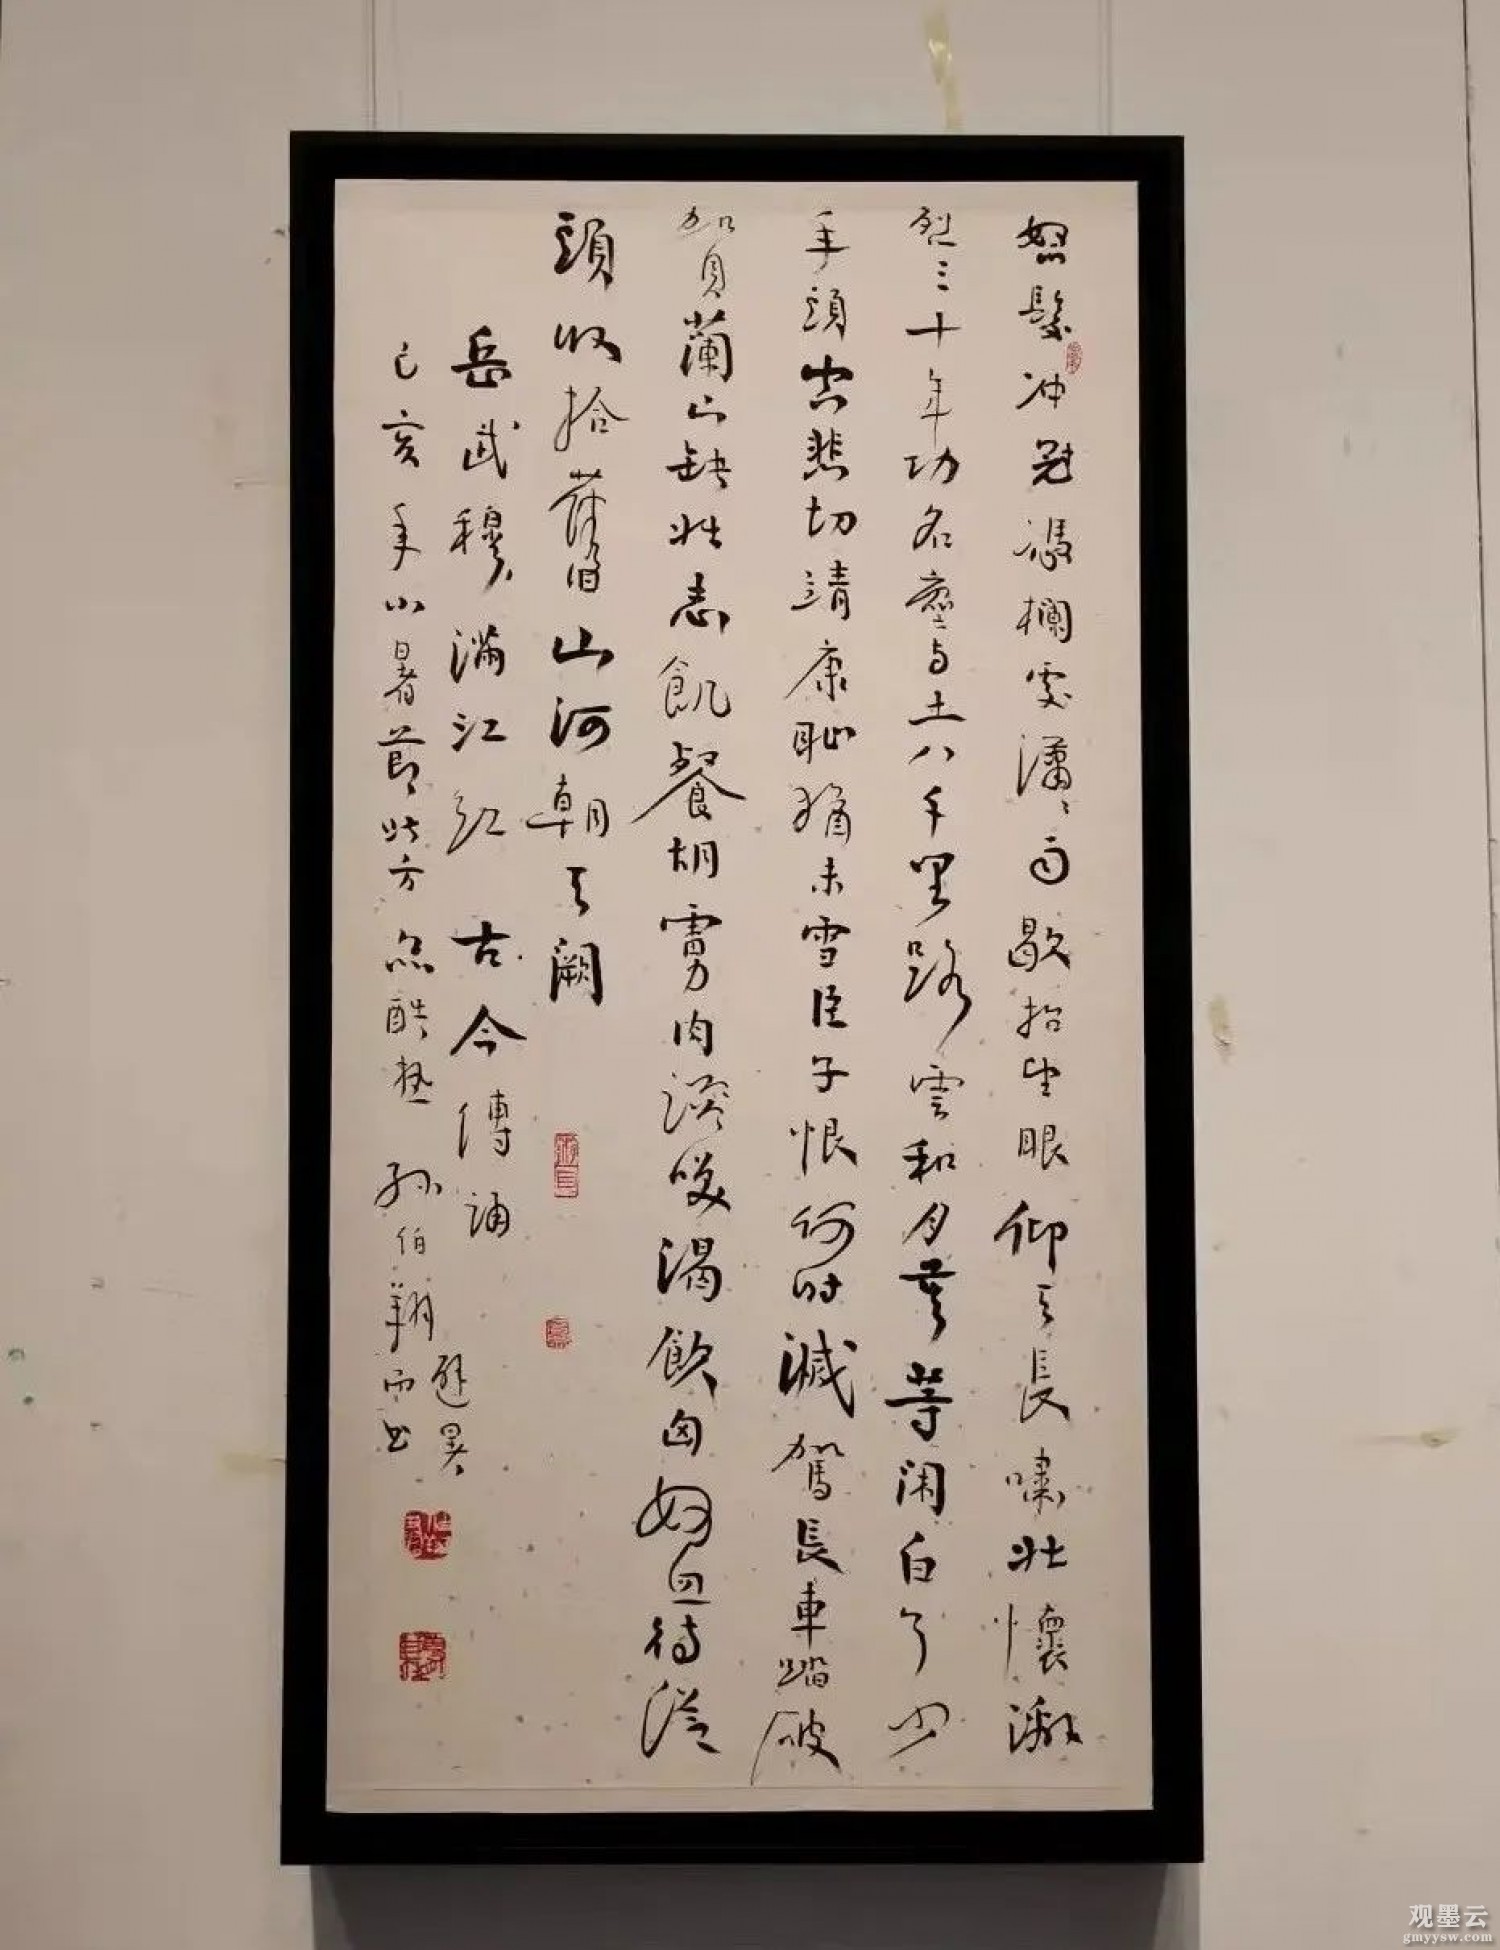 怒髮冲冠憑欄處瀟瀟雨歇抬望眼仰天長嘯壯懷激
烈三十年功名塵與土八千里路雲和月莫等闲白了少
年頭空悲切靖康恥猶未雪臣子恨何時滅駕長車踏破
賀蘭山缺壯志飢餐胡虜肉談笑渴飲匈奴血待從
頭收拾舊山河朝天闕
岳武穆滿江紅 古今傳誦
己亥年小暑節北方魚酷熱 孫伯翔而书
避暑
观墨云
gmyysw.com